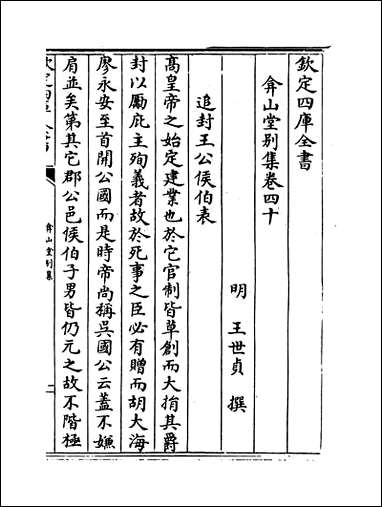 欽定四庫全書
弇山堂别集卷四十
明　王世貞　撰
追封王公侯伯表
髙皇帝之始定建業也於它官制皆草創而大㨂其爵
封以勵庇主殉義者故於死事之臣必有贈而胡大海
廖永安至首開公國而是時帝尚稱吳國公云蓋不嫌
肩並矣第其它郡公邑侯伯子男皆仍元之故不階極
欽定四庫全書
弇山堂别集
二